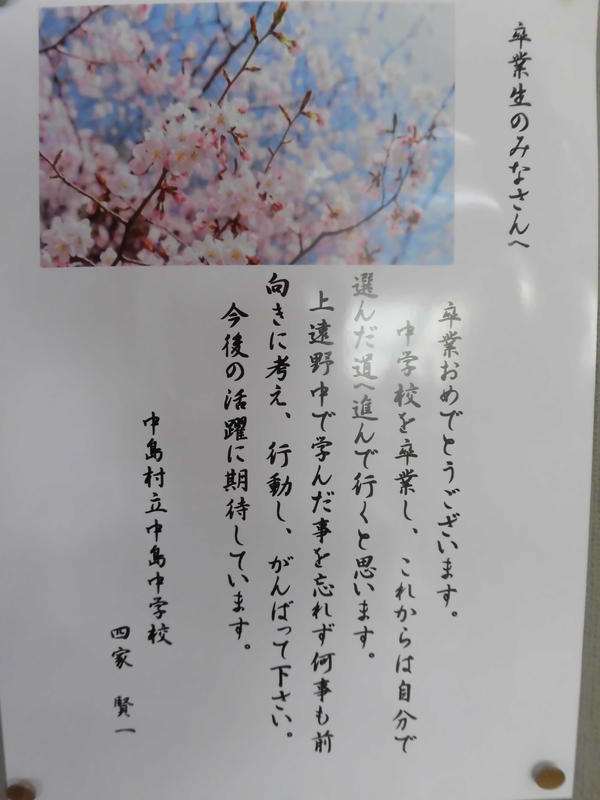 卒業生のみなさんへ
卒業おめでとうございます。
中学校を卒業し、これからは自分で
選んだ道へ進んで行くと思います。
上遠野中で学んだ事を忘れず何事も前
向きに考え、行動し、がんばって下さい。
今後の活躍に期待しています。
中島村立中島中学校
四家 賢一